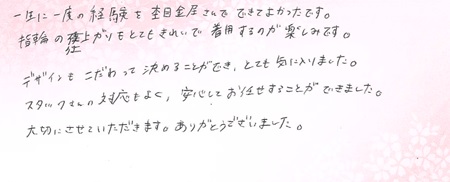 一生に一度の経験を杢目金屋さんでできてよかったです。
指輪の仕上がりもとてもきれいで着用するのが楽しみです。
デザインもこだわって決めることができ、とても気に入りました。
スタッフさんの対応もよく、安心してお任せすることができました。
大切にさせていただきます。ありがとうございました。